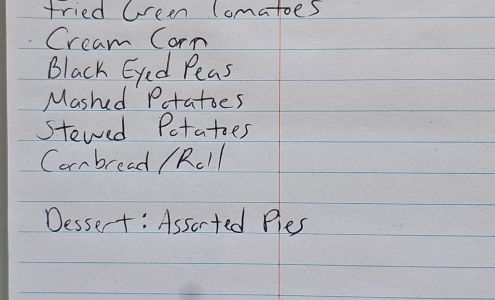 Fried Green Tomatoes
Cream Corn
Black Eyed Peas
Mashed Potatoes
Stewed Potatoes
Cornbread/Roll
Dessert: Assorted Pies